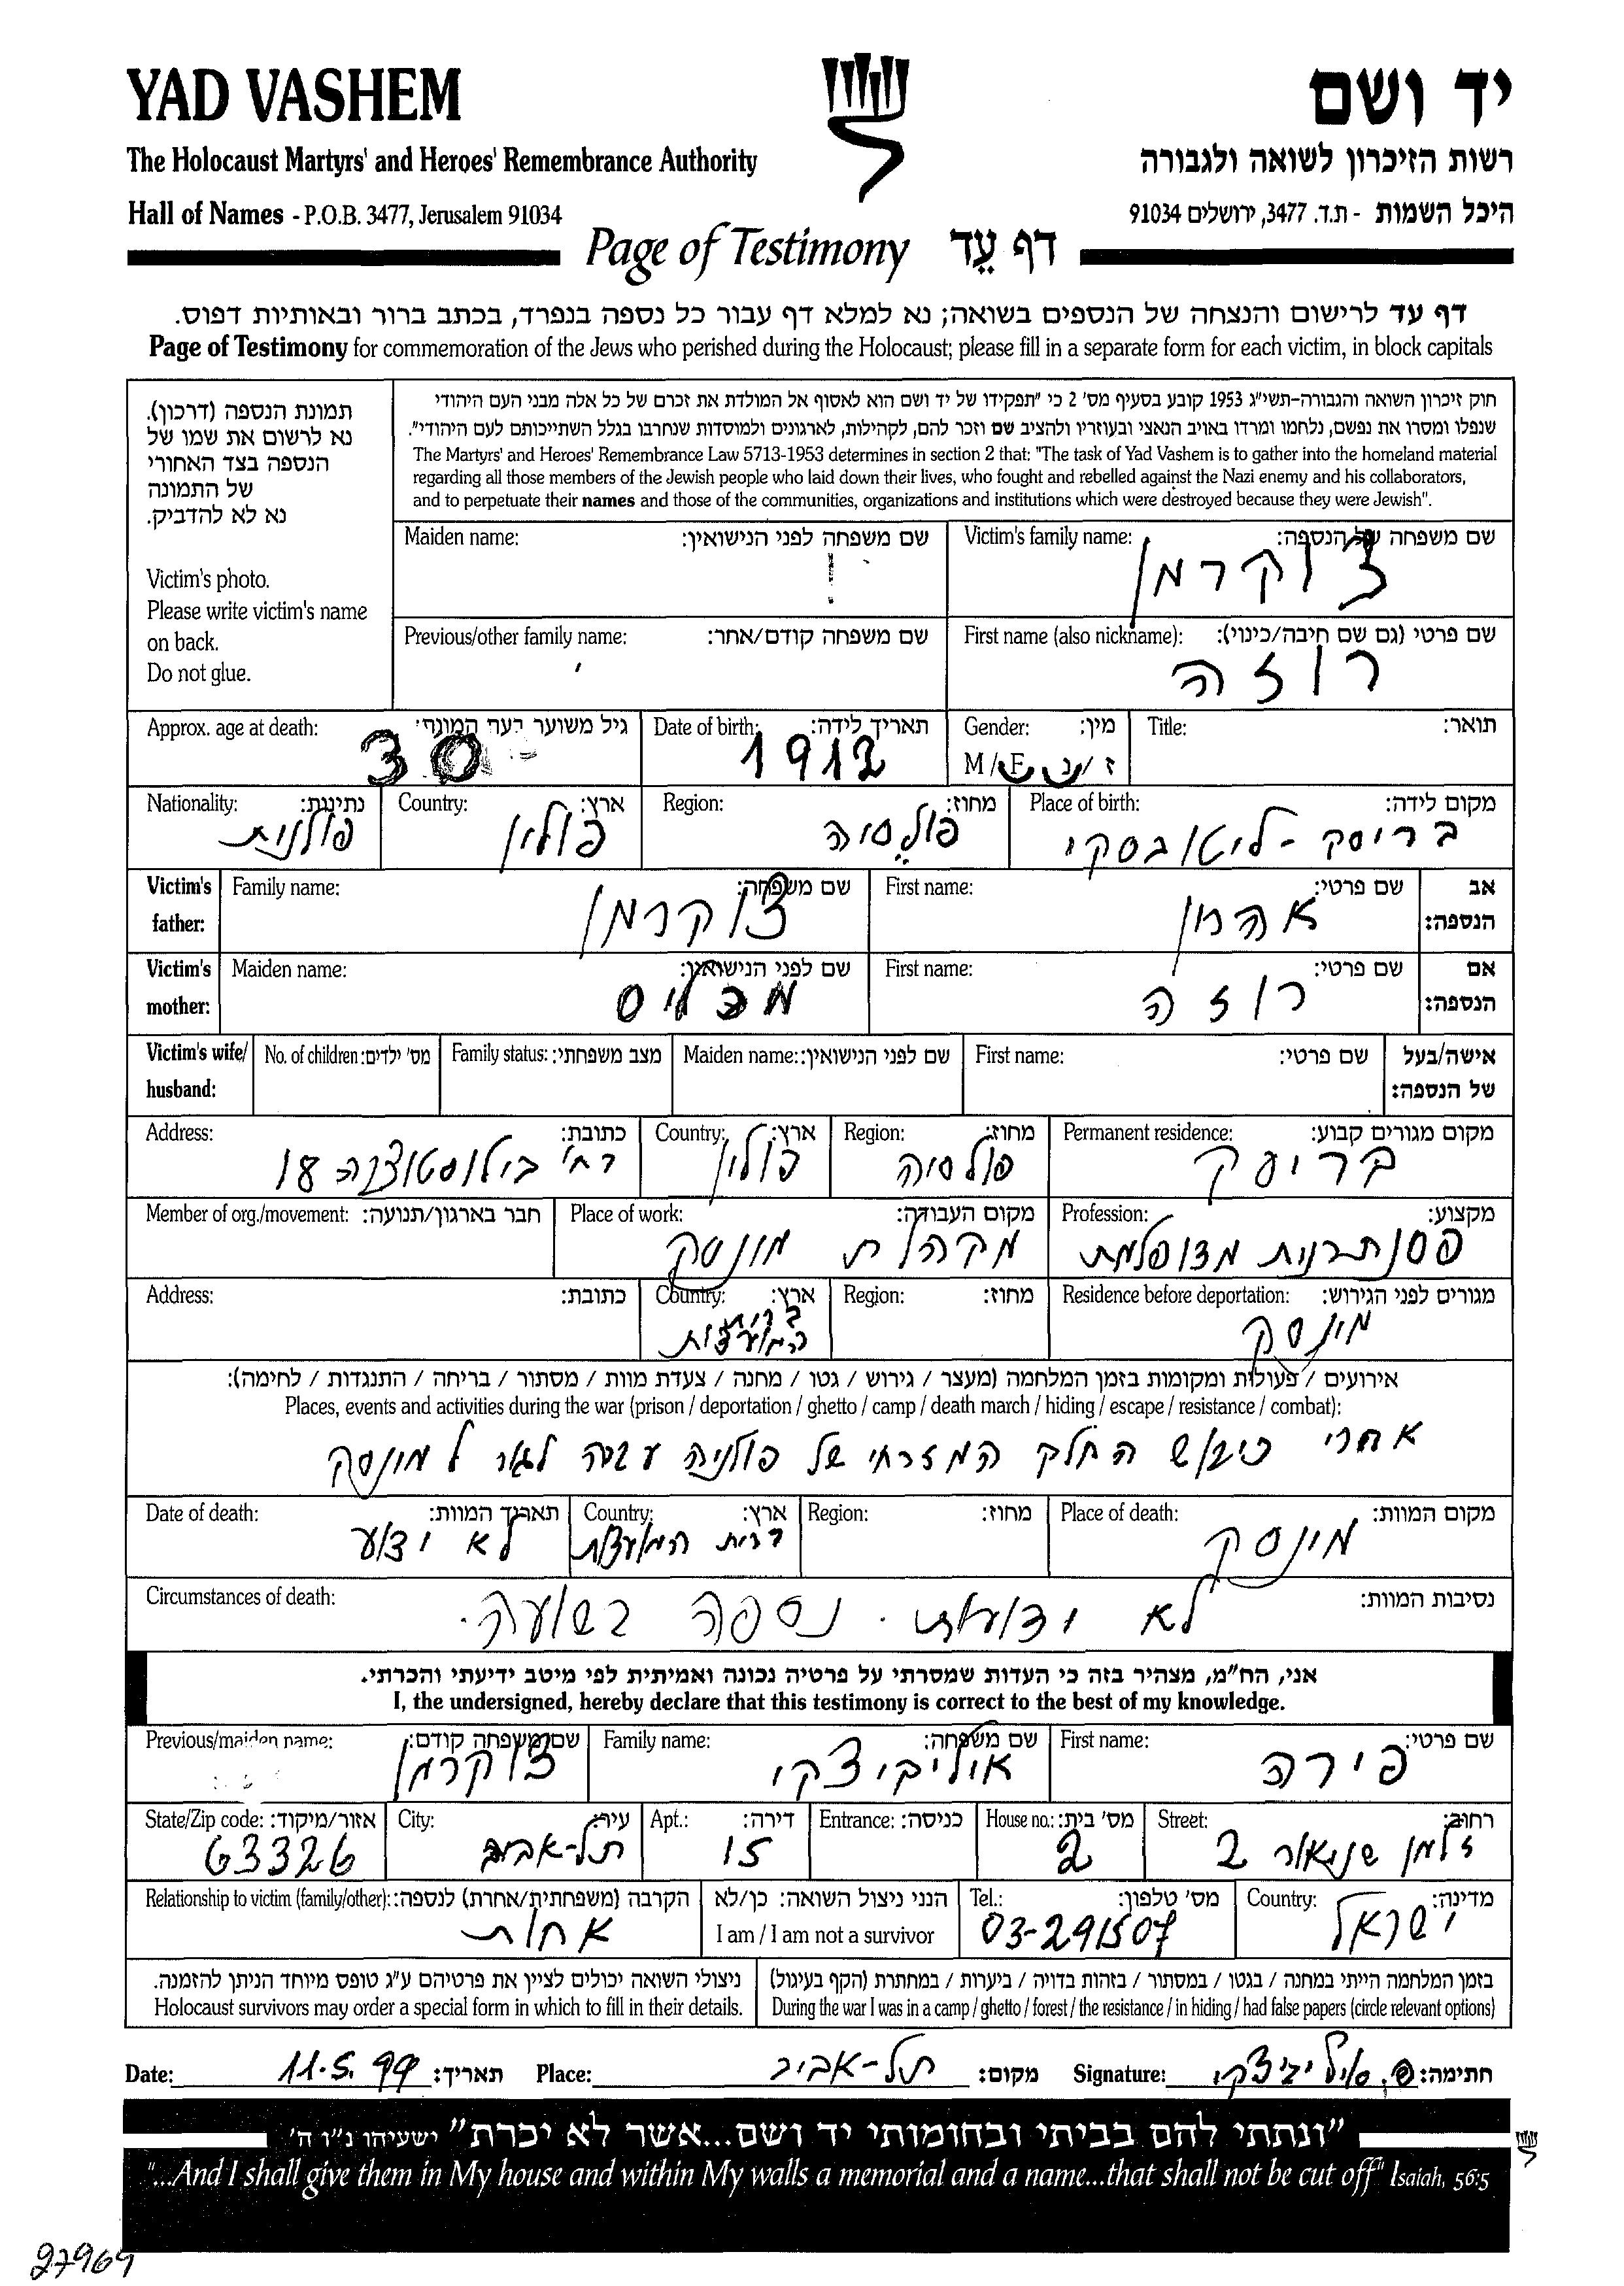 YAD VASHEM
יד ושם
The Holocaust Martyrs' and Heroes' Remembrance Authority
רשות הזיכרון לשואה ולגבורה
Hall of Names - P.O.B. 3477, Jerusalem 91034
היכל השמות - ת.ד. 3477, ירושלים 91034
Page of Testimony דף עֵד
דף עד לרישום והנצחה של הנספים בשואה; נא למלא דף עבור כל נספה בנפרד, בכתב ברור ובאותיות דפוס.
Page of Testimony for commemoration of the Jews who perished during the Holocaust; please fill in a separate form for each victim, in block capitals
תמונת הנספה (דרכון).
נא לרשום את שמו של
הנספה בצד האחורי
של התמונה
נא לא להדביק.
Victim's photo.
Please write victim's name
on back.
Do not glue.
חוק זיכרון השואה והגבורה-תשי"ג 1953 קובע בסעיף מס' 2 כי "תפקידו של יד ושם הוא לאסוף אל המולדת את זכרם של כל אלה מבני העם היהודי
שנפלו ומסרו את נפשם, נלחמו ומרדו באויב הנאצי ובעוזריו ולהציב שם וזכר להם, לקהילות, לארגונים ולמוסדות שנחרבו בגלל השתייכותם לעם היהודי".
The Martyrs' and Heroes' Remembrance Law 5713-1953 determines in section 2 that: "The task of Yad Vashem is to gather into the homeland material
regarding all those members of the Jewish people who laid down their lives, who fought and rebelled against the Nazi enemy and his collaborators,
and to perpetuate their names and those of the communities, organizations and institutions which were destroyed because they were Jewish".
שם משפחה של הנספה: Victim's family name:
צוקרמן
שם משפחה לפני הנישואין: Maiden name:
שם פרטי (גם שם חיבה/כינוי): First name (also nickname):
רוזה
שם משפחה קודם/אחר: Previous/other family name:
תואר: Title:
מין: Gender:
ז/נ M/F
תאריך לידה: Date of birth:
1912
גיל משוער בעת המוות: Approx. age at death:
30
מקום לידה: Place of birth:
בריסק - ליטובסקי
מחוז: Region:
פולסיה
ארץ: Country:
פולין
נתינות: Nationality:
פולנית
אב הנספה: Victim's father:
שם פרטי: First name:
אהרון
שם משפחה: Family name:
צוקרמן
אם הנספה: Victim's mother:
שם פרטי: First name:
רוזה
שם לפני הנישואין: Maiden name:
אישה/בעל של הנספה: Victim's wife/husband:
שם פרטי: First name:
שם לפני הנישואין: Maiden name:
מצב משפחתי: Family status:
מס' ילדים: No. of children:
מקום מגורים קבוע: Permanent residence:
בריסק
מחוז: Region:
פולסיה
ארץ: Country:
פולין
כתובת: Address:
רח' בילוסטוצקה 18
מקצוע: Profession:
פסנתרנית מצופלמת
מקום העבודה: Place of work:
מקהלת מינסק
חבר בארגון/תנועה: Member of org./movement:
מגורים לפני הגירוש: Residence before deportation:
מינסק
מחוז: Region:
ארץ: Country:
ברית
המועצות
כתובת: Address:
אירועים / פעולות ומקומות בזמן המלחמה (מעצר / גירוש / גטו / מחנה / צעדת מוות / מסתור / בריחה / התנגדות / לחימה):
Places, events and activities during the war (prison / deportation / ghetto / camp / death march / hiding / escape / resistance / combat):
אחרי כיבוש החלק המזרחי של פולניה עברה לגור למינסק
מקום המוות: Place of death:
מינסק
מחוז: Region:
ארץ: Country:
ברית המועצות
תאריך המוות: Date of death:
לא ידוע
נסיבות המוות: Circumstances of death:
לא ידועות. נספה בשועה.
אני, הח"מ, מצהיר בזה כי העדות שמסרתי על פרטיה נכונה ואמיתית לפי מיטב ידיעתי והכרתי.
I, the undersigned, hereby declare that this testimony is correct to the best of my knowledge.
שם פרטי: First name:
פירה
שם משפחה: Family name:
אוליביצקי
שם משפחה קודם: Previous/maiden name:
צוקרמן
רחוב: Street:
זלמן שניאור 2
מס' בית: House no.:
2
כניסה: Entrance:
דירה: Apt.:
15
עיר: City:
תל-אביב
אזור/מיקוד: State/Zip code:
63326
מדינה: Country:
ישראל
מס' טלפון: Tel.:
03-291507
הנני ניצול השואה: כן/לא
I am / I am not a survivor
הקרבה (משפחתית/אחרת) לנספה: Relationship to victim (family/other):
אחות
בזמן המלחמה הייתי במחנה / בגטו / במסתור / בזהות בדויה / ביערות / במחתרת (הקף בעיגול)
During the war I was in a camp / ghetto / forest / the resistance / in hiding / had false papers (circle relevant options)
ניצולי השואה יכולים לציין את פרטיהם ע"ג טופס מיוחד הניתן להזמנה.
Holocaust survivors may order a special form in which to fill in their details.
Date: 11.5.99 תאריך: Place: תל-אביב מקום: Signature: חתימה:
"ונתתי להם בביתי ובחומותי יד ושם...אשר לא יכרת" ישעיהו נ"ו ה'
"...And I shall give them in My house and within My walls a memorial and a name...that shall not be cut off" Isaiah, 56:5
27969